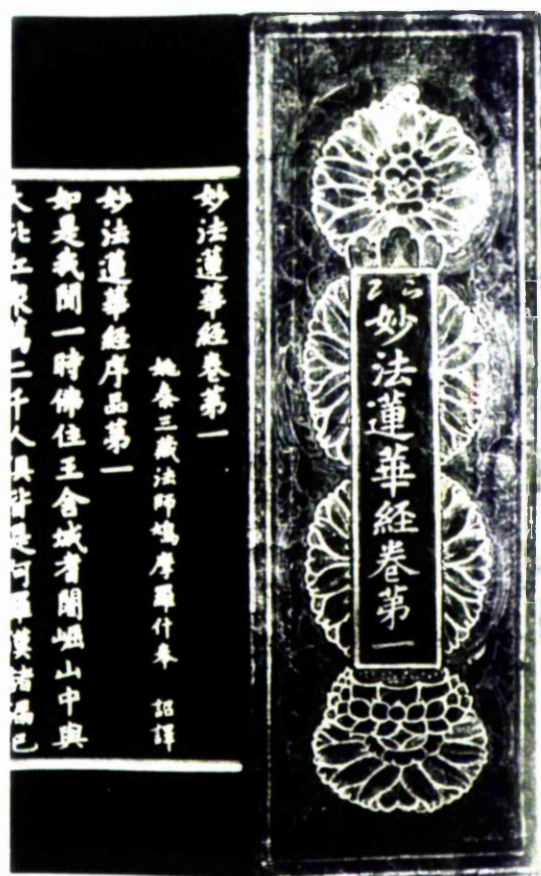 妙法蓮華経卷第一
妙法蓮華經卷第一
姚秦三藏法師鳩摩羅什奉 詔譯
妙法蓮華經序品第一
如是我聞一時佛住王舍城耆闍崛山中與
大比丘衆萬二千人俱皆是阿羅漢諸漏已